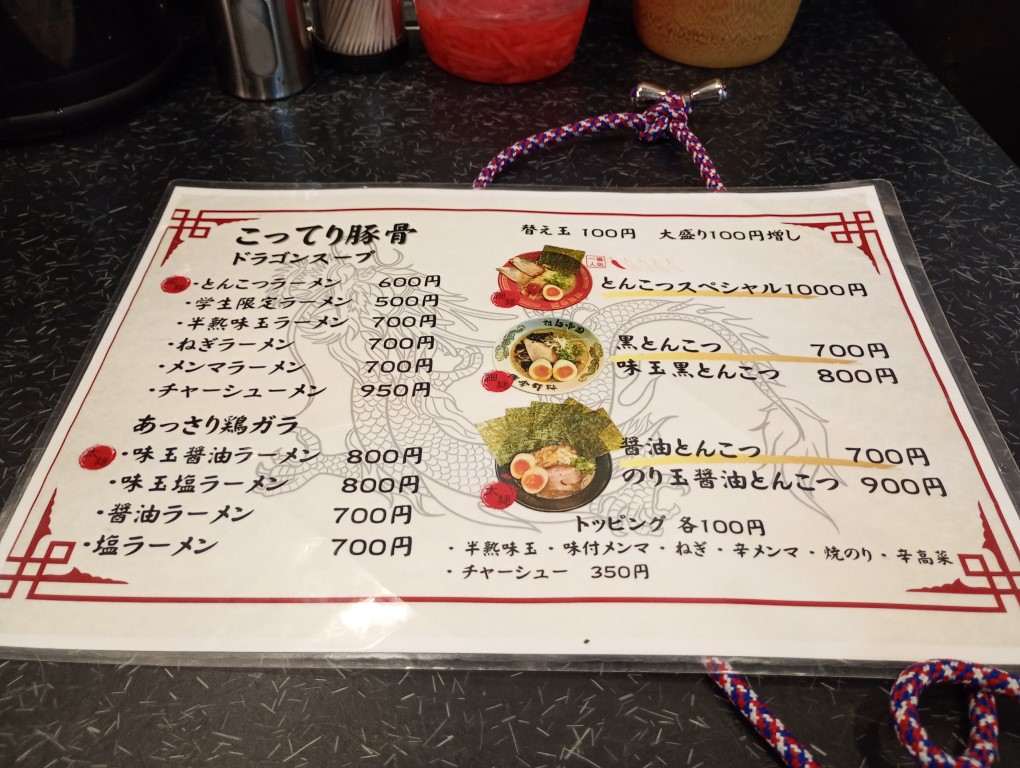 こってり豚骨
ドラゴンスープ
・とんこつラーメン 600円
・学生限定ラーメン 500円
・半熟味玉ラーメン 700円
・ねぎラーメン 700円
・メンマラーメン 700円
・チャーシューメン 950円
あっさり鶏ガラ
・味玉醤油ラーメン 800円
・味玉塩ラーメン 800円
・醤油ラーメン 700円
・塩ラーメン 700円
替え玉 100円 大盛り100円増し
一番人気
とんこつスペシャル1000円
細麺
黒とんこつ 700円
味玉黒とんこつ 800円
細麺
醤油とんこつ 700円
のり玉醤油とんこつ 900円
太麺
トッピング 各100円
・半熟味玉・味付メンマ・ねぎ・辛メンマ・焼のり・辛高菜
・チャーシュー 350円